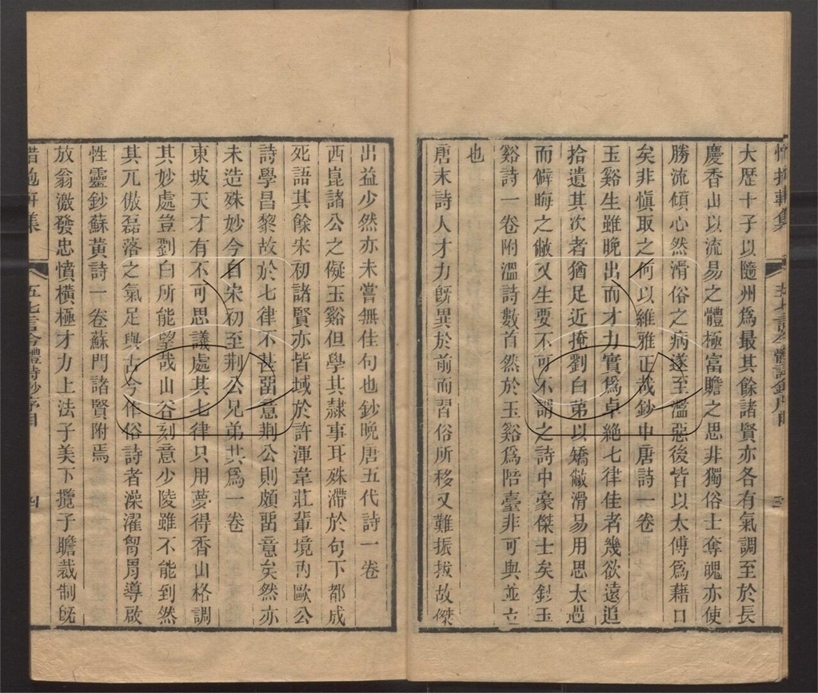 大歷十子以隨州爲最其餘諸賢亦各有氣調至於長
慶香山以流易之體極富贍之思非獨俗士奪魄亦使
勝流傾心然滑俗之病遂至濫惡後皆以太傅爲藉口
矣非愼取之何以維雅正哉鈔中唐詩一卷
玉谿生雖晚出而才力實爲卓絶七律佳者幾欲遠追
拾遺其次者猶足近掩劉白第以矯敝滑易用思太過
而僻晦之敝又生要不可不謂之詩中豪傑士矣鈔玉
谿詩一卷附溫詩數首然於玉谿爲陪臺非可與並立
也
唐末詩人才力旣異於前而習俗所移又難振拔故傑
五七言今體詩鈔序目
三
出益少然亦未嘗無佳句也鈔晚唐五代詩一卷
西崑諸公之儗玉谿但學其隸事耳殊滯於句下都成
死語其餘宋初諸賢亦皆域於許渾韋莊輩境內歐公
詩學昌黎故於七律不甚畱意荆公則頗畱意矣然亦
未造殊妙今自宋初至荆公兄弟共爲一卷
東坡天才有不可思議處其七律只用夢得香山格調
其妙處豈劉白所能望哉山谷刻意少陵雖不能到然
其兀傲磊落之氣足與古今作俗詩者澡濯胷胃導啟
性靈鈔蘇黃詩一卷蘇門諸賢附焉
放翁激發忠憤橫極才力上法子美下攬子瞻裁制旣
惜抱軒集
五七言今體詩鈔序目
四